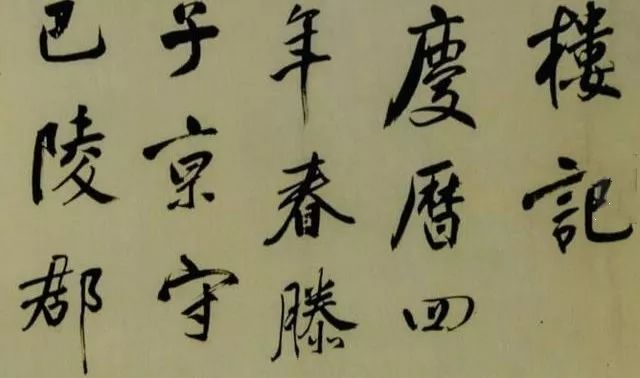 樓記
慶曆四
年春滕
子京守
巴陵郡